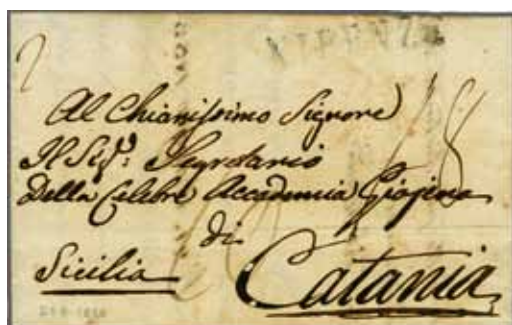 Al Chiarissimo Signore
Il Sig.r Segretario
Della Celebre Accademia Giojena
di
Sicilia Catania